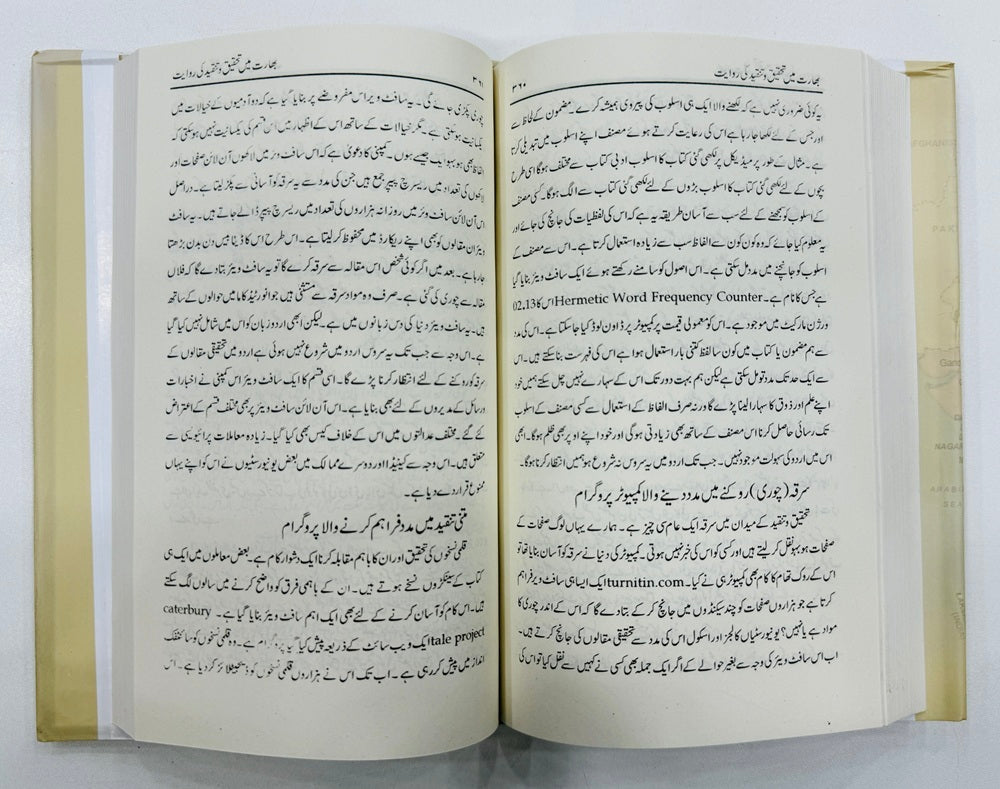 بھارت میں تحقیق و تنقید کی روایت
۳۶۰
یہ کوئی ضروری نہیں ہے کہ لکھنے والا ایک ہی اسلوب کی پیروی ہمیشہ کرے۔ مضمون کے لحاظ سے
اور جس کے لئے لکھا جا رہا ہے اس کی رعایت کرتے ہوئے مصنف اپنے اسلوب میں تبدیلی کرتا
ہے۔ مثال کے طور پر میڈیکل پر لکھی گئی کتاب کا اسلوب ادبی کتاب سے مختلف ہوگا اسی طرح
بچوں کے لئے لکھی گئی کتاب کا اسلوب بڑوں کے لئے لکھی گئی کتاب سے الگ ہوگا۔ کسی مصنف
کے اسلوب کو سمجھنے کے لئے سب سے آسان طریقہ یہ ہے کہ اس کی لفظیات کی جانچ کی جائے اور
یہ معلوم کیا جائے کہ وہ کون کون سے الفاظ سب سے زیادہ استعمال کرتا ہے۔ اس سے مصنف کے
اسلوب کو جانچنے میں مدد مل سکتی ہے۔ اس اصول کو سامنے رکھتے ہوئے ایک سافٹ ویئر بنایا گیا
ہے جس کا نام ہے۔ Hermetic Word Frequency Counter اس کا 02.13
ورژن مارکیٹ میں موجود ہے۔ اس کو معمولی قیمت پر کمپیوٹر پر ڈاون لوڈ کیا جا سکتا ہے۔ اس کی مدد
سے ہم مضمون یا کتاب میں کون سا لفظ کتنی بار استعمال ہوا ہے اس کی فہرست بنا سکتے ہیں۔ اس
سے ایک حد تک مدد تو مل سکتی ہے لیکن ہم بہت دور تک اس کے سہارے نہیں چل سکتے ہمیں خود
اپنے علم اور ذوق کا سہارا لینا پڑے گا ورنہ صرف الفاظ کے استعمال سے کسی مصنف کے اسلوب
تک رسائی حاصل کرنا اس مصنف کے ساتھ بھی زیادتی ہوگی اور خود اپنے اوپر بھی ظلم ہوگا۔ ابھی
اس میں اردو کی سہولت موجود نہیں۔ جب تک اردو میں یہ سروس نہ شروع ہو ہمیں انتظار کرنا ہوگا۔
سرقہ (چوری) روکنے میں مدد دینے والا کمپیوٹر پروگرام
تحقیق و تنقید کے میدان میں سرقہ ایک عام سی چیز ہے۔ ہمارے یہاں لوگ صفحات کے
صفحات ہو بہو نقل کر لیتے ہیں اور کسی کو اس کی خبر نہیں ہوتی۔ کمپیوٹر کی دنیا نے سرقہ کو آسان بنایا تھا تو
اس کے روک تھام کا کام بھی کمپیوٹر ہی نے کیا۔ turnitin.com ایک ایسا ہی سافٹ ویر فراہم
کرتا ہے جو ہزاروں صفحات کو چند سیکنڈوں میں جانچ کر کے بتا دے گا کہ اس کے اندر چوری کا
مواد ہے یا نہیں؟ یونیورسٹیاں کالجز اور اسکول اس کی مدد سے تحقیقی مقالوں کی جانچ کرتے ہیں۔
اب اس سافٹ ویئر کی وجہ سے بغیر حوالے کے اگر ایک جملہ بھی کسی نے کہیں سے نقل کیا تو اس کی
بھارت میں تحقیق و تنقید کی روایت
۳۶۱
چوری پکڑی جائے گی۔ یہ سافٹ ویر اس مفروضے پر بنایا گیا ہے کہ دو آدمیوں کے خیالات میں
یکسانیت ہو سکتی ہے۔ مگر خیالات کے ساتھ اس کے اظہار میں اس قسم کی یکسانیت نہیں ہو سکتی کہ
الفاظ بھی ہو بہو ایک جیسے ہوں۔ کمپنی کا دعویٰ ہے کہ اس سافٹ ویر میں لاکھوں آن لائن صفحات اور
لاکھوں کی تعداد میں ریسرچ پیپر جمع ہیں جن کی مدد سے یہ سرقہ کو آسانی سے پکڑ لیتا ہے۔ دراصل
اس آن لائن سافٹ ویئر میں روزانہ ہزاروں کی تعداد میں ریسرچ پیپر ڈالے جاتے ہیں۔ یہ سافٹ
ویئر ان مقالوں کو بھی اپنے ریکارڈ میں محفوظ کر لیتا ہے۔ اس طرح اس کا ڈیٹا بیس دن بدن بڑھتا
جا رہا ہے۔ بعد میں اگر کوئی شخص اس مقالہ سے سرقہ کرے گا تو یہ سافٹ ویئر بتا دے گا کہ فلاں
مقالہ سے چوری کی گئی ہے۔ صرف وہ مواد سرقہ سے مستثنیٰ ہیں جو انورٹیڈ کاما میں حوالوں کے ساتھ
ہیں۔ یہ سافٹ ویئر دنیا کی دس زبانوں میں ہے۔ لیکن ابھی اردو زبان کو اس میں شامل نہیں کیا گیا
ہے۔ اس وجہ سے جب تک یہ سروس اردو میں شروع نہیں ہوئی ہے اردو میں تحقیقی مقالوں کے
سرقہ کو روکنے کے لئے انتظار کرنا پڑے گا۔ اسی قسم کا ایک سافٹ ویئر اس کمپنی نے اخبارات
ورسائل کے مدیروں کے لئے بھی بنایا ہے۔ اس آن لائن سافٹ ویئر پر بھی مختلف قسم کے اعتراض
کئے گئے۔ مختلف عدالتوں میں اس کے خلاف کیس بھی کیا گیا۔ زیادہ معاملات پرائیویسی سے
متعلق ہیں۔ اس وجہ سے کینیڈا اور دوسرے ممالک میں بعض یونیورسٹیوں نے اس کو اپنے یہاں
ممنوع قرار دے دیا ہے۔
متنی تنقید میں مدد فراہم کرنے والا پروگرام
قلمی نسخوں کی تحقیق اور ان کا باہم مقابلہ کرنا ایک دشوار کام ہے۔ بعض معاملوں میں ایک ہی
کتاب کے سینکڑوں نسخے ہوتے ہیں۔ ان کے باہمی فرق کو واضح کرنے میں سالوں لگ سکتے
ہیں۔ اس کام کو آسان کرنے کے لئے بھی ایک اہم سافٹ ویئر بنایا گیا ہے۔ caterbury
tale project ایک ویب سائٹ کے ذریعہ پیش کیا گیا پروگرام ہے۔ وہ قلمی نسخوں کو سائنٹفک
انداز میں پیش کر رہی ہے۔ اب تک اس نے ہزاروں قلمی نسخوں کو ڈیجیٹلائز کر دیا ہے۔ اس